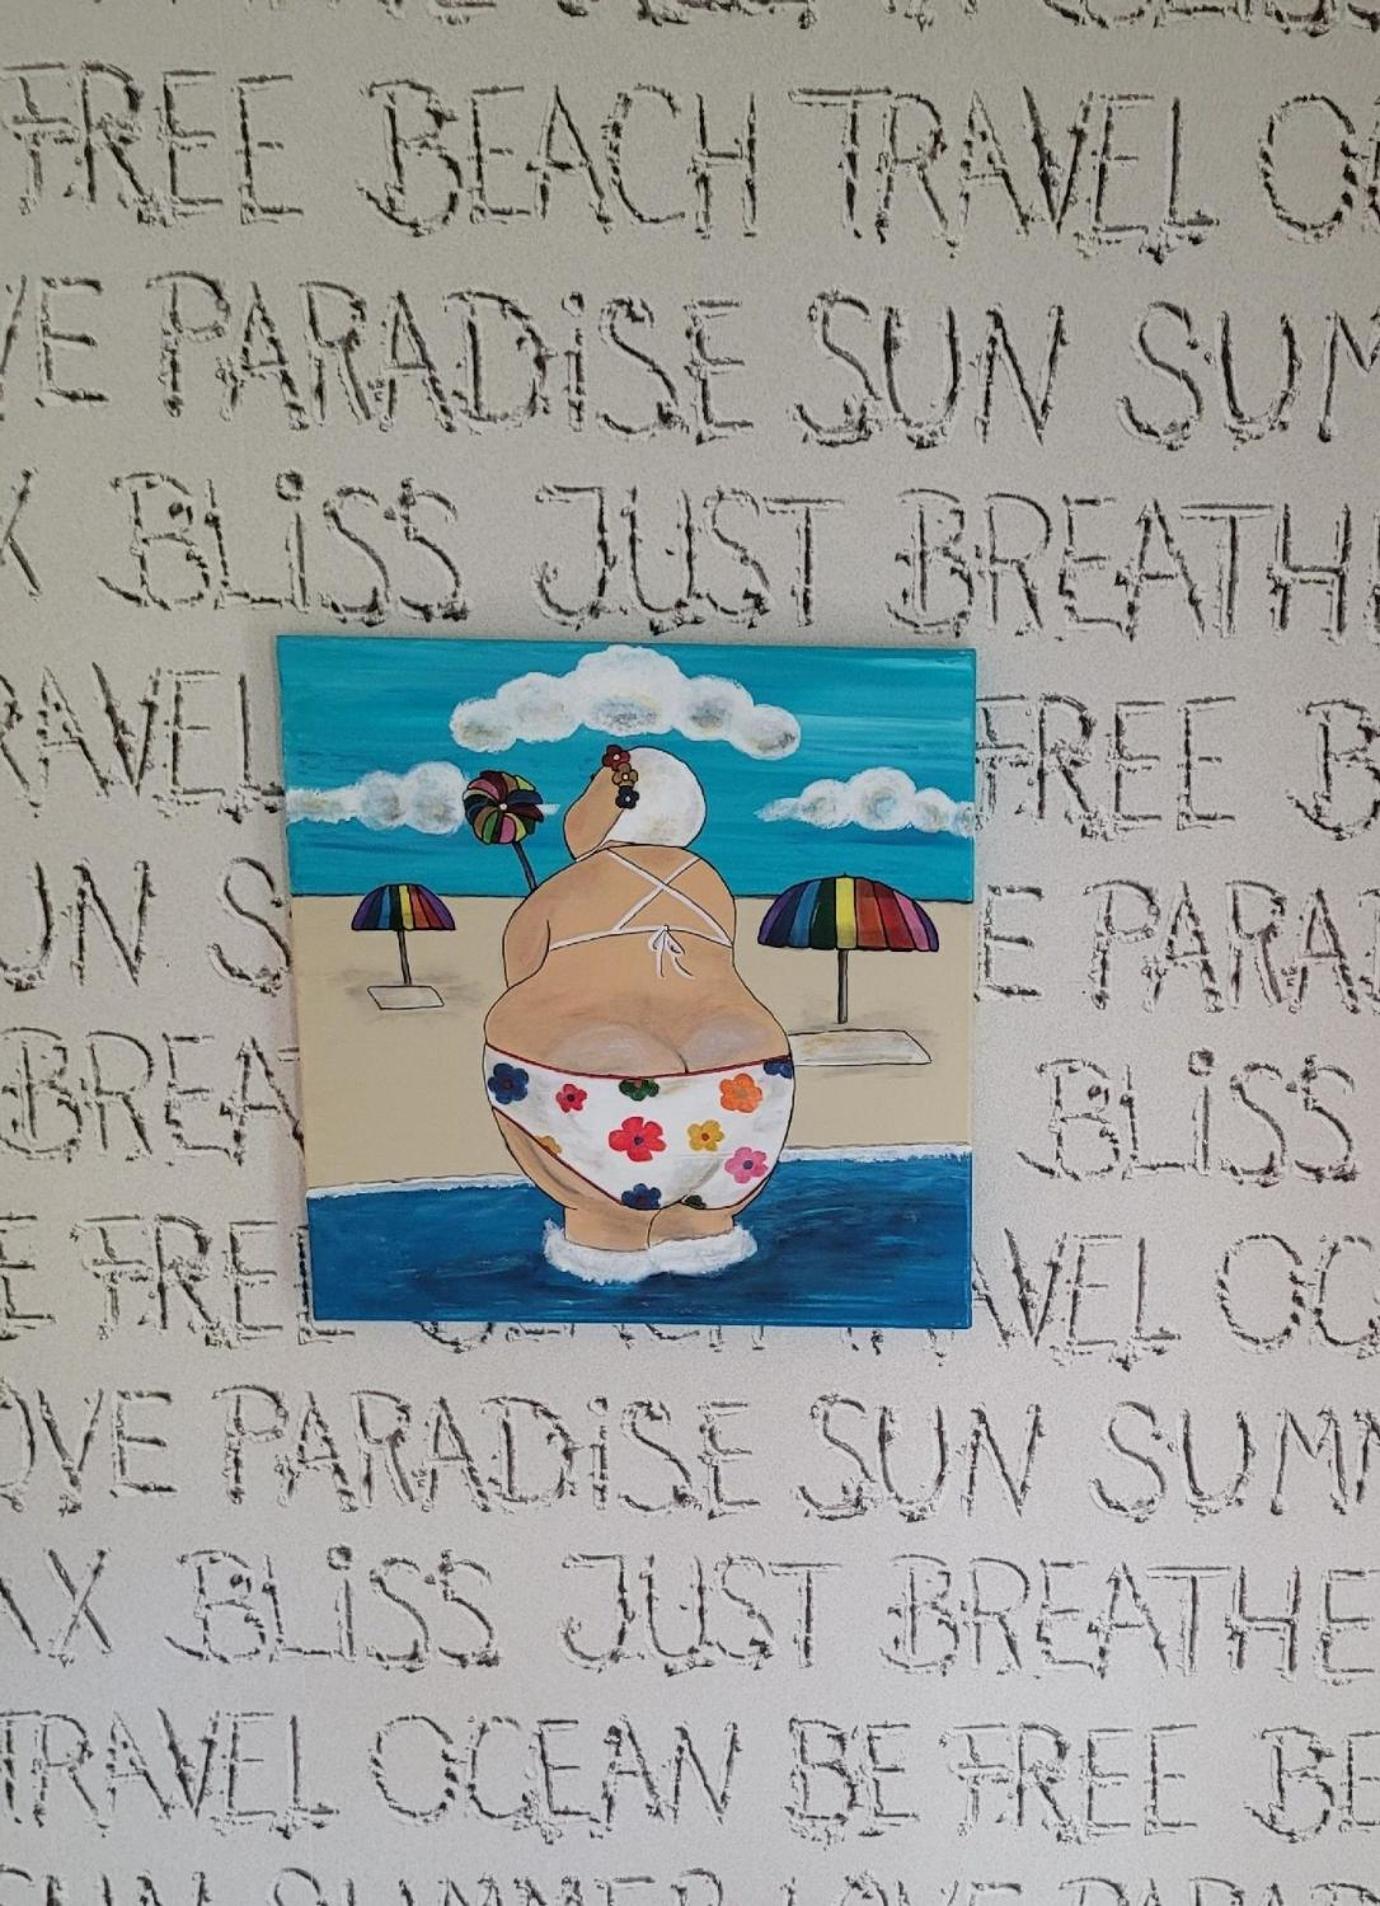 FREE BEACH TRAVEL OC
VE PARADiSE SUN SUM
X BLiSS JUST BREATHE
RAVEL FREE B
UN S E PARAD
BREAT BLiSS
E FREE BEACH TRAVEL OC
OVE PARADiSE SUN SUMM
AX BLiSS JUST BREATHE
TRAVEL OCEAN BE FREE BE
SUN SUMMER LOVE PARAD